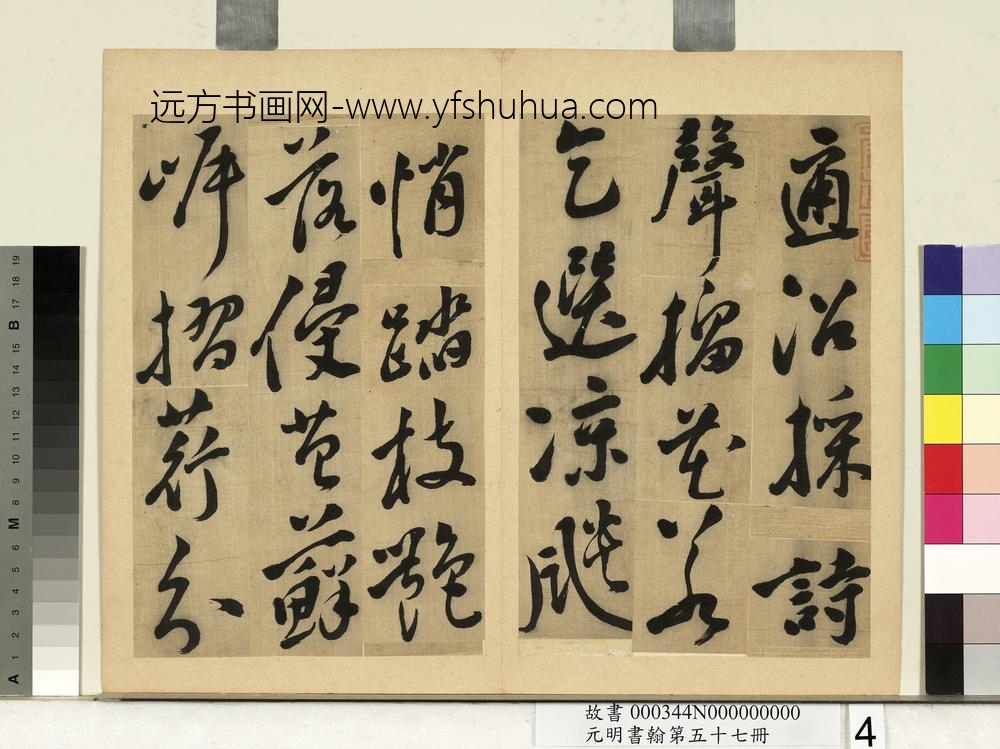 远方书画网-www.yfshuhua.com
適沿採詩
聲榴花若
乞選涼颷
悄踏枝艷
落侵苔蘚
摺
故書 000344N000000000
元明書翰第五十七冊
4
19
18
17
B
16
15
14
13
12
11
10
M
9
8
7
6
5
4
3
2
1
A